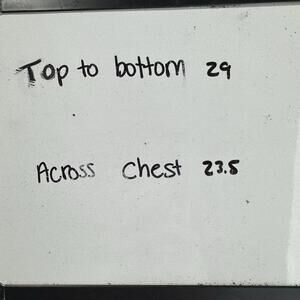 Top to bottom 29
Across Chest 23.5